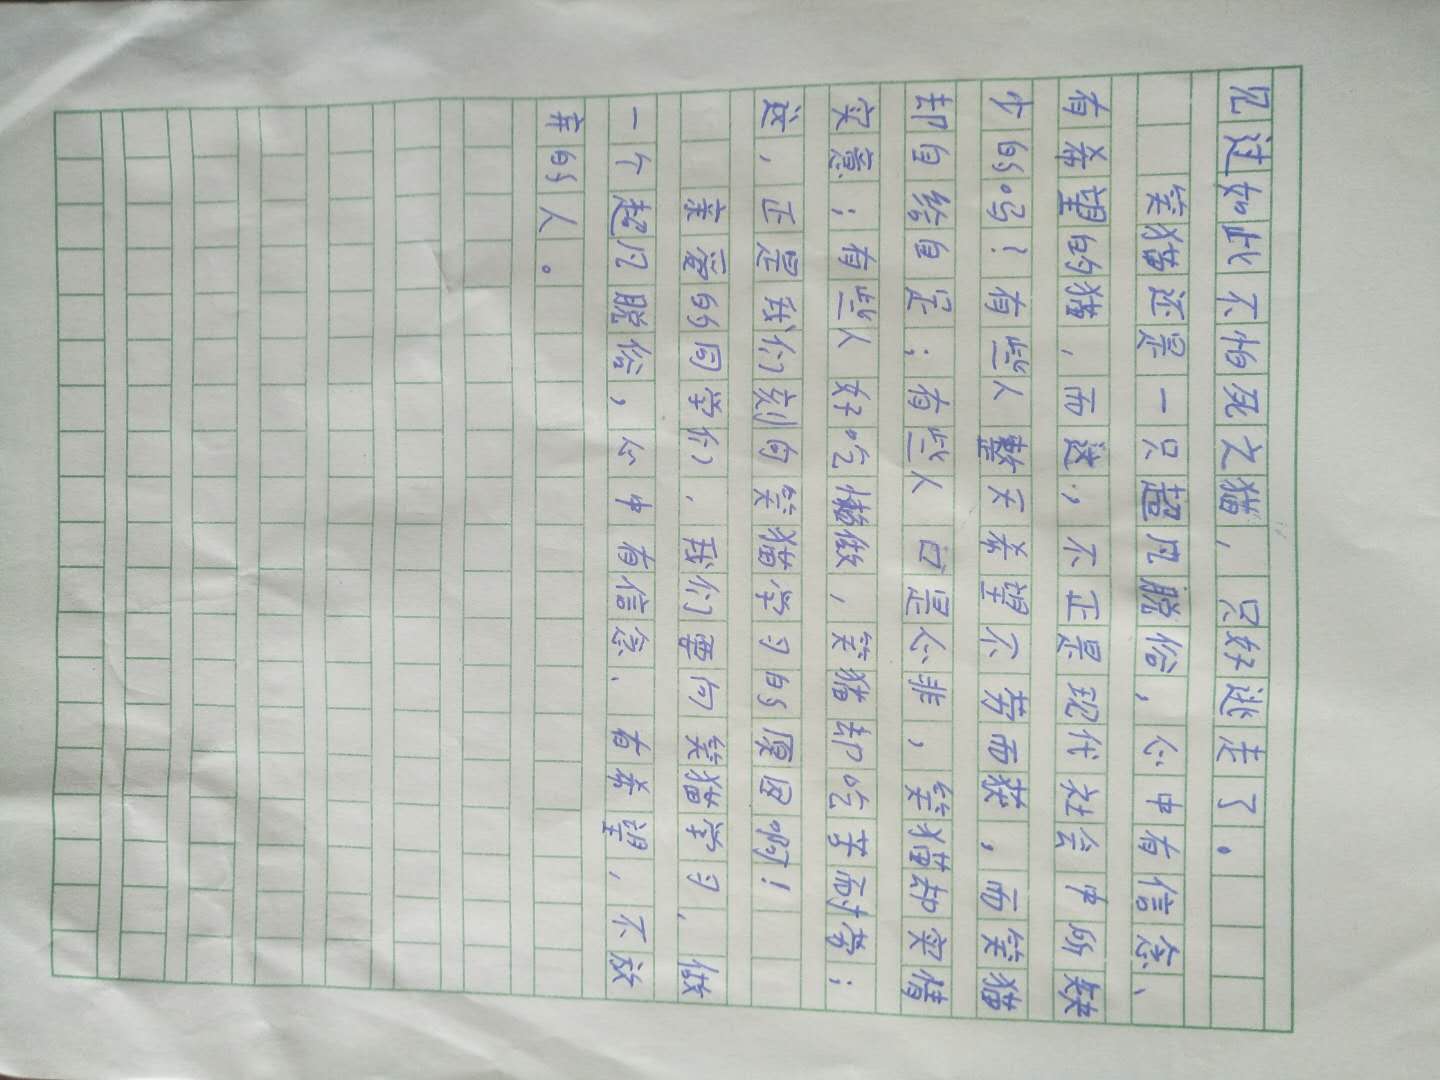 见过如此不怕死之猫，只好逃走了。
笑猫还是一只超凡脱俗，心中有信念、
有希望的猫，而这，不正是现代社会中所缺
少的吗？有些人整天希望不劳而获，而笑猫
却自给自足；有些人口是心非，笑猫却实情
实意；有些人好吃懒做，笑猫却吃苦耐劳；
这，正是我们刻向笑猫学习的原因啊！
亲爱的同学们，我们要向笑猫学习，做
一个超凡脱俗，心中有信念、有希望，不放
弃的人。